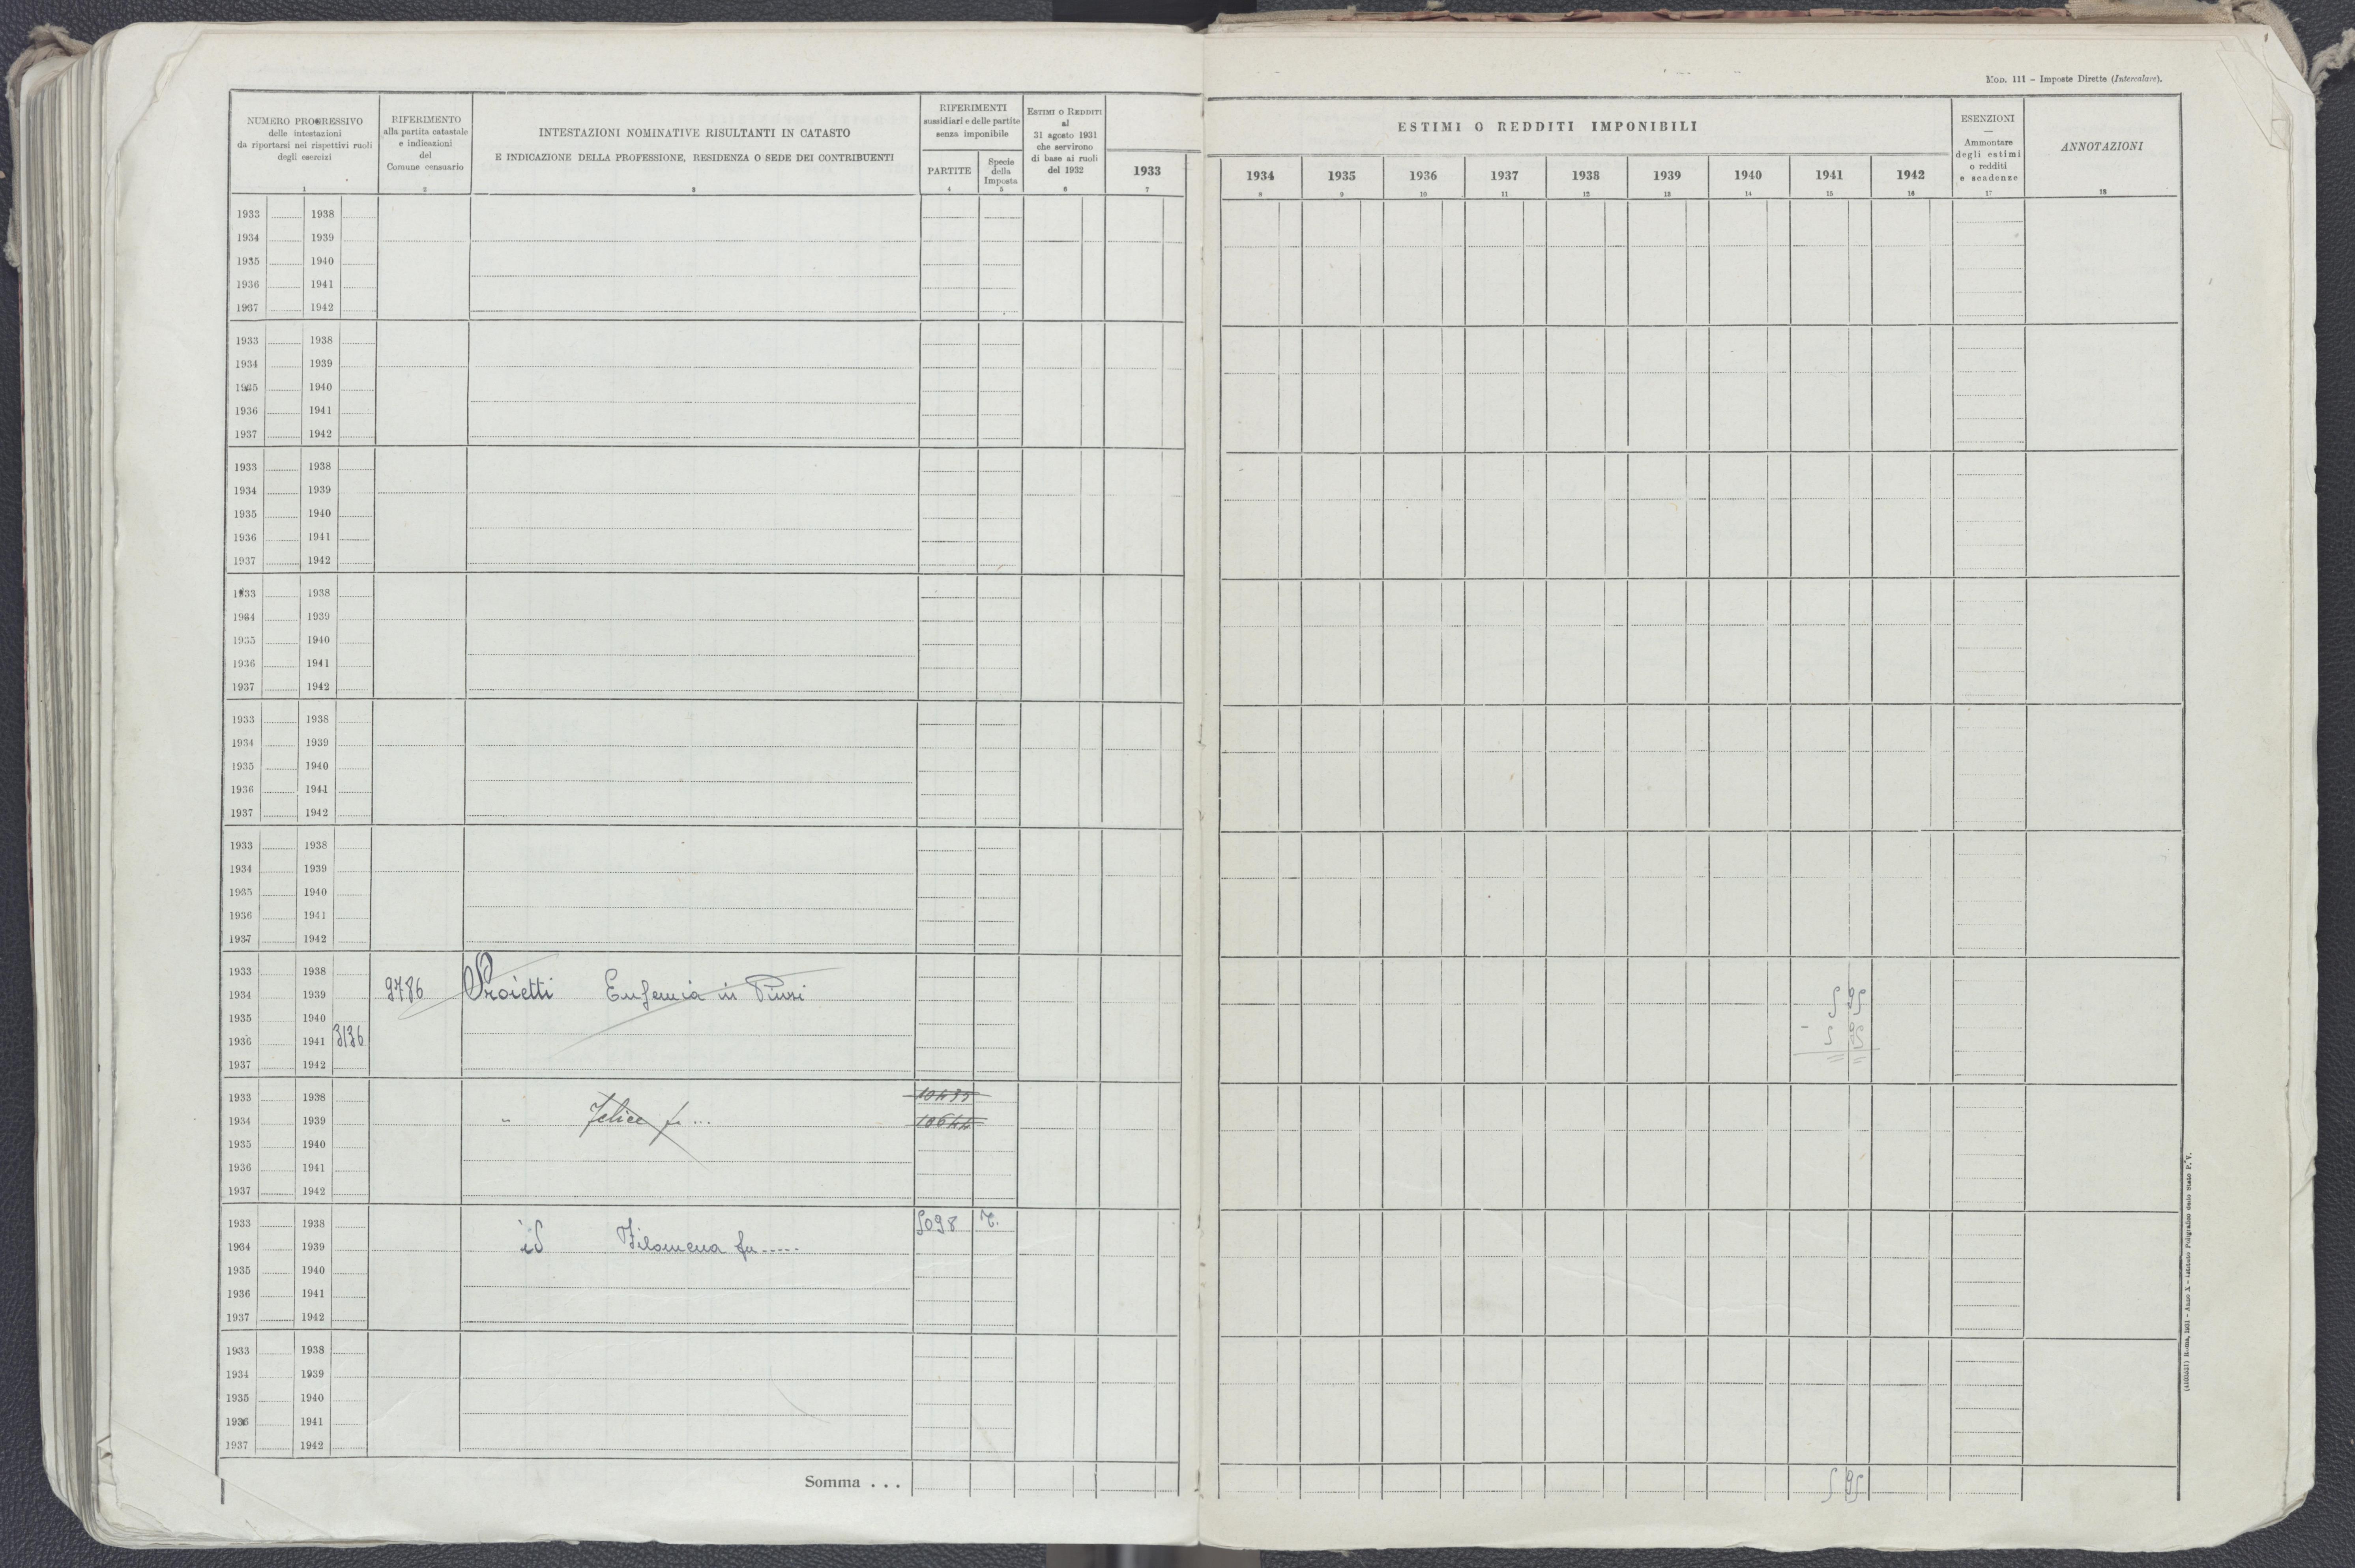 Mod. 111 – Imposte Dirette (Intercalare).
NUMERO PROGRESSIVO
delle intestazioni
da riportarsi nei rispettivi ruoli
degli esercizi
1
RIFERIMENTO
alla partita catastale
e indicazioni
del
Comune censuario
2
INTESTAZIONI NOMINATIVE RISULTANTI IN CATASTO
E INDICAZIONE DELLA PROFESSIONE, RESIDENZA O SEDE DEI CONTRIBUENTI
3
RIFERIMENTI
sussidiari e delle partite
senza imponibile
PARTITE
4
Specie
della
Imposta
5
Estimi o Redditi
al
31 agosto 1931
che servirono
di base ai ruoli
del 1932
6
1933
7
ESTIMI O REDDITI IMPONIBILI
1934 1935 1936 1937 1938 1939 1940 1941 1942
8 9 10 11 12 13 14 15 16
ESENZIONI
—
Ammontare
degli estimi
o redditi
e scadenze
17
ANNOTAZIONI
18
1933 1938
1934 1939
1935 1940
1936 1941
1937 1942
1933 1938
1934 1939
1935 1940
1936 1941
1937 1942
1933 1938
1934 1939
1935 1940
1936 1941
1937 1942
1933 1938
1934 1939
1935 1940
1936 1941
1937 1942
1933 1938
1934 1939
1935 1940
1936 1941
1937 1942
1933 1938
1934 1939
1935 1940
1936 1941
1937 1942
1933 1938
1934 1939 9786 Proietti Eufemia in 5 95
1935 1940
1936 1941 3136 - 5 95
1937 1942
1933 1938
1934 1939 " Felice fu ... 10644
1935 1940
1936 1941
1937 1942
1933 1938 5098 T.
1934 1939 id Filomena fu .....
1935 1940
1936 1941
1937 1942
1933 1938
1934 1939
1935 1940
1936 1941
1937 1942
Somma . . . 5 95
Roma, 1931 - Anno X - Istituto Poligrafico dello Stato P. V.